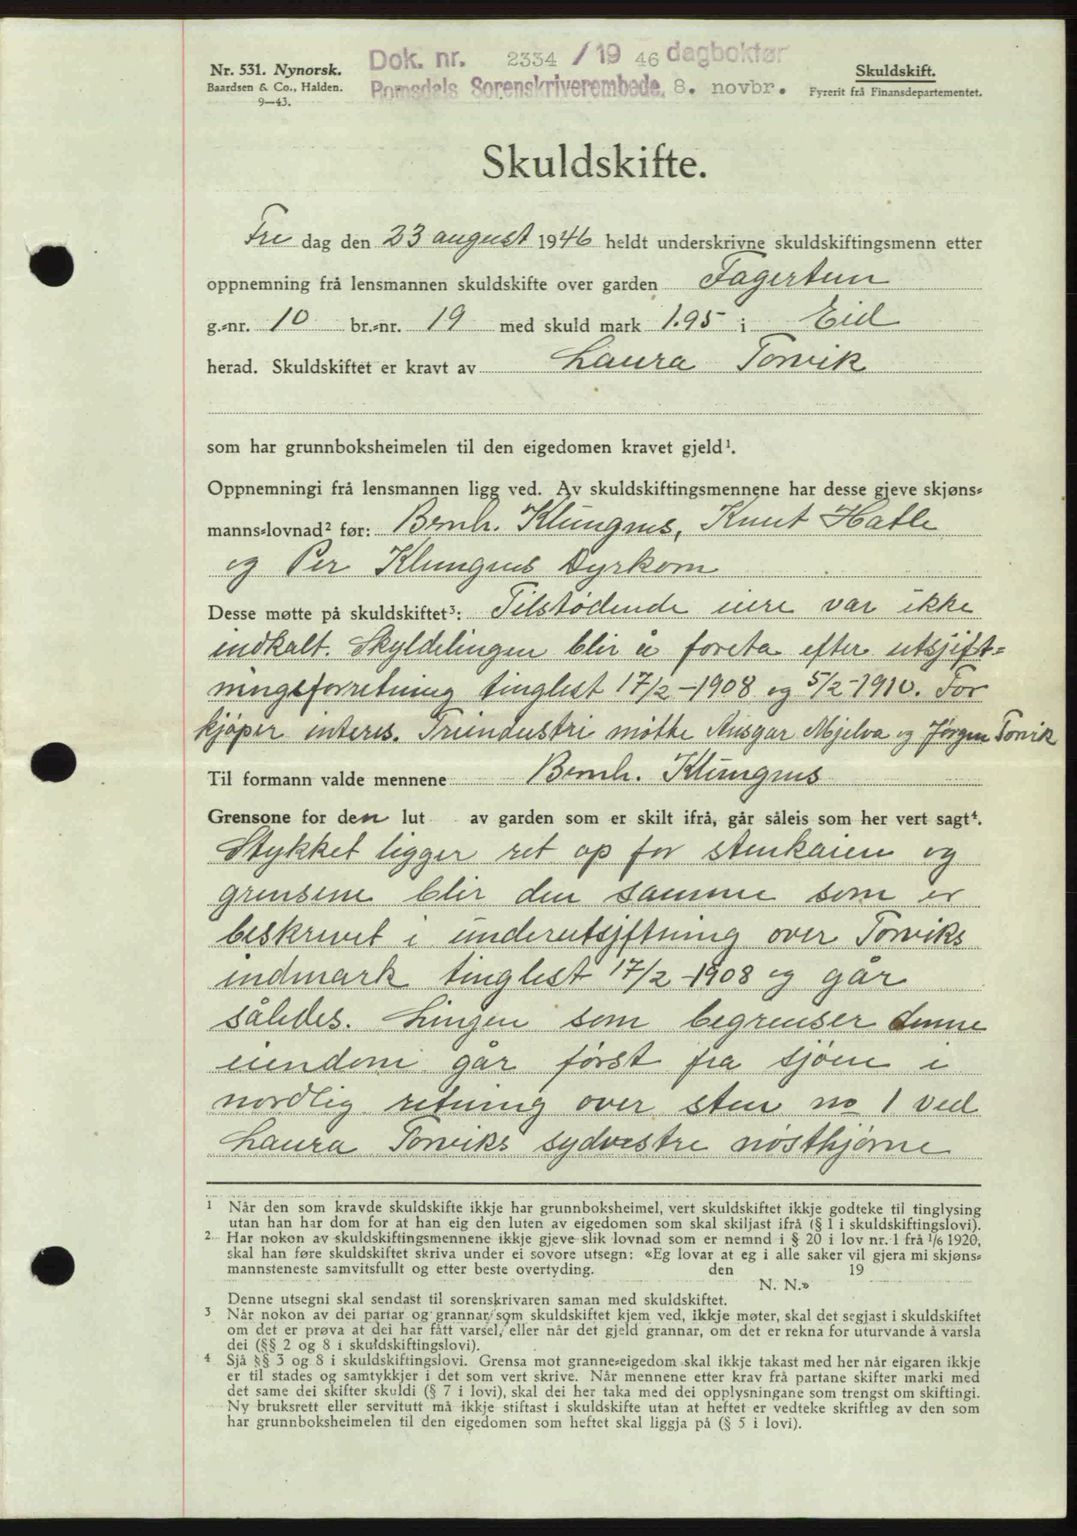 Nr. 531. Nynorsk.
Baardsen & Co., Halden.
9—43.
Dok. nr. 2334 / 19 46 dagboktør
Romsdals Sorenskriverembede, 8. novbr.
Skuldskift.
Fyrerit frå Finansdepartementet.
Skuldskifte.
Fre dag den 23 august 1946 heldt underskrivne skuldskiftingsmenn etter
oppnemning frå lensmannen skuldskifte over garden Fagertun
g.-nr. 10 br.-nr. 19 med skuld mark 1.95 i Eid
herad. Skuldskiftet er kravt av Laura Torvik
som har grunnboksheimelen til den eigedomen kravet gjeld¹.
Oppnemningi frå lensmannen ligg ved. Av skuldskiftingsmennene har desse gjeve skjøns-
manns-lovnad² før: Bernh. Klungnes, Knut Hatle
og Per Klungnes Dyrkorn
Desse møtte på skuldskiftet³: Tilstødende eiere var ikke
indkalt. Skyldelingen blir å foreta efter utsjift-
ningsforretning tinglest 17/2-1908 og 5/2-1910. For
kjøper interes. Treindustri møtte Ansgar Mjelva og Jørgen Torvik
Til formann valde mennene Bernh. Klungnes
Grensone for den lut av garden som er skilt ifrå, går såleis som her vert sagt⁴.
Stykket ligger ret op for stenkaien og
grensene blir den samme som er
beskrevet i underutsjiftning over Torviks
indmark tinglest 17/2-1908 og går
således. Lingen som begrenser denne
eiendom går først fra sjøen i
nordlig retning over sten no 1 ved
Laura Torviks sydvestre nøsthjørne
1 Når den som kravde skuldskifte ikkje har grunnboksheimel, vert skuldskiftet ikkje godteke til tinglysing
utan han har dom for at han eig den luten av eigedomen som skal skiljast ifrå (§ 1 i skuldskiftingslovi).
2 Har nokon av skuldskiftingsmennene ikkje gjeve slik lovnad som er nemnd i § 20 i lov nr. 1 frå 1/6 1920,
skal han føre skuldskiftet skriva under ei sovore utsegn: «Eg lovar at eg i alle saker vil gjera mi skjøns-
mannsteneste samvitsfullt og etter beste overtyding. den 19
N. N.»
Denne utsegni skal sendast til sorenskrivaren saman med skuldskiftet.
3 Når nokon av dei partar og grannar som skuldskiftet kjem ved, ikkje møter, skal det segjast i skuldskiftet
om det er prøva at dei har fått varsel, eller når det gjeld grannar, om det er rekna for uturvande å varsla
dei (§§ 2 og 8 i skuldskiftingslovi).
4 Sjå §§ 3 og 8 i skuldskiftingslovi. Grensa mot granne-eigedom skal ikkje takast med her når eigaren ikkje
er til stades og samtykkjer i det som vert skrive. Når mennene etter krav frå partane skifter marki med
det same dei skifter skuldi (§ 7 i lovi), skal dei her taka med dei opplysningane som trengst om skiftingi.
Ny bruksrett eller servitutt må ikkje stiftast i skuldskifte utan at heftet er vedteke skriftleg av den som
har grunnboksheimelen til den eigedomen som heftet skal liggja på (§ 5 i lovi).